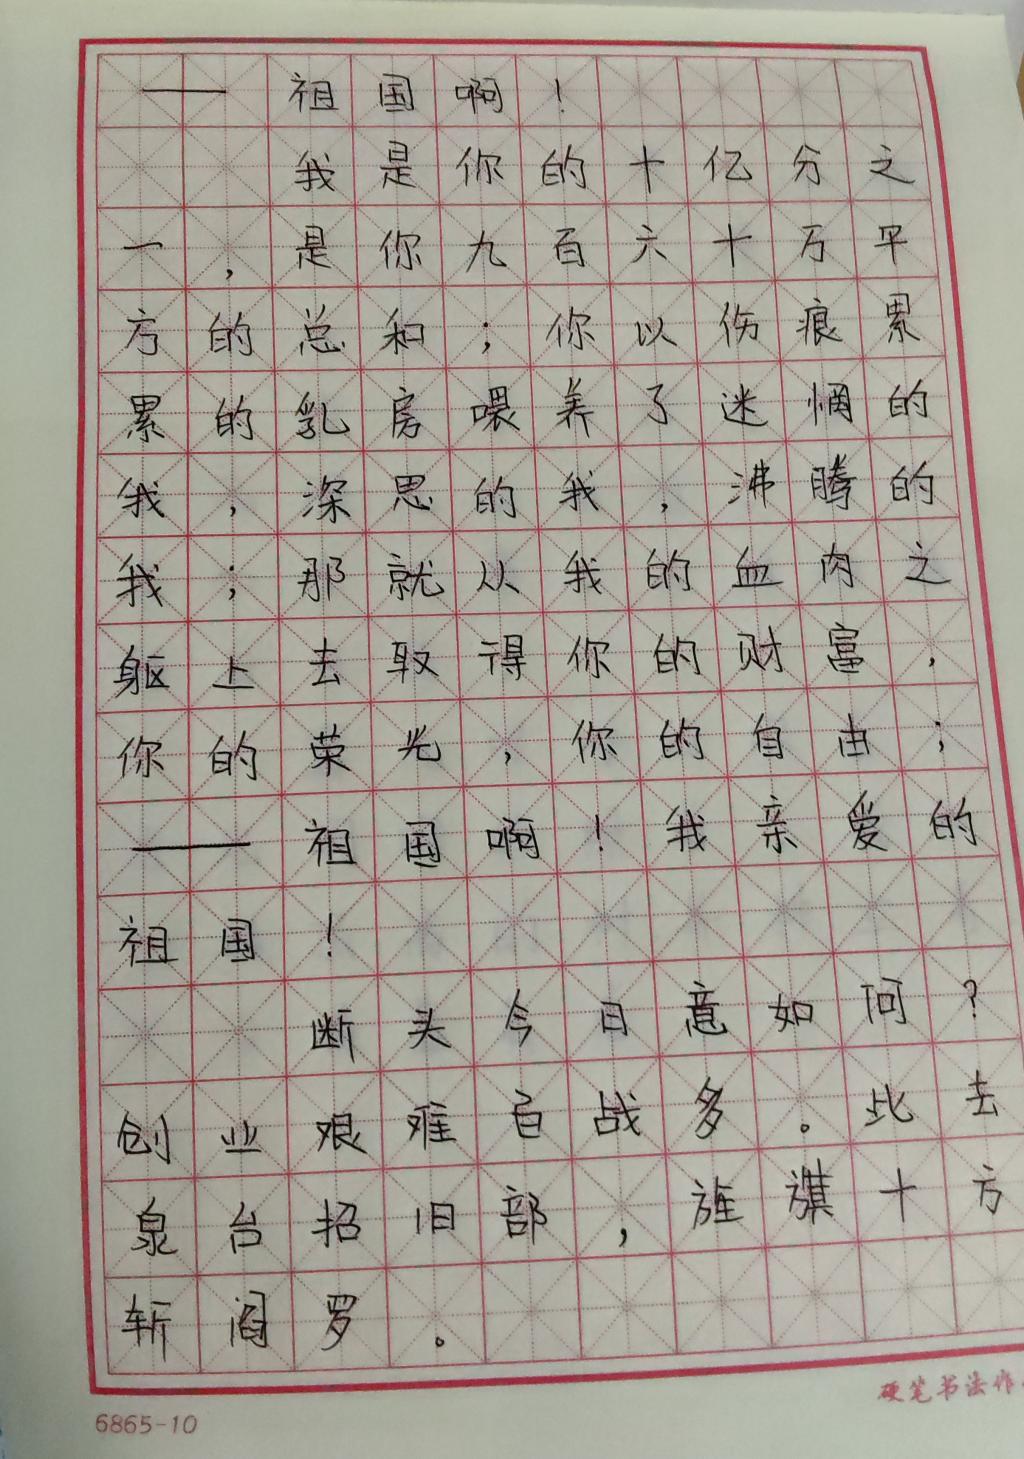 ——祖国啊！
我是你的十亿分之
一，是你九百六十万平
方的总和；你以伤痕累
累的乳房喂养了迷惘的
我，深思的我，沸腾的
我；那就从我的血肉之
躯上去取得你的财富，
你的荣光，你的自由；
——祖国啊！我亲爱的
祖国！
断头今日意如何？
创业艰难百战多。此去
泉台招旧部，旌旗十方
斩阎罗。
硬笔书法作
6865-10